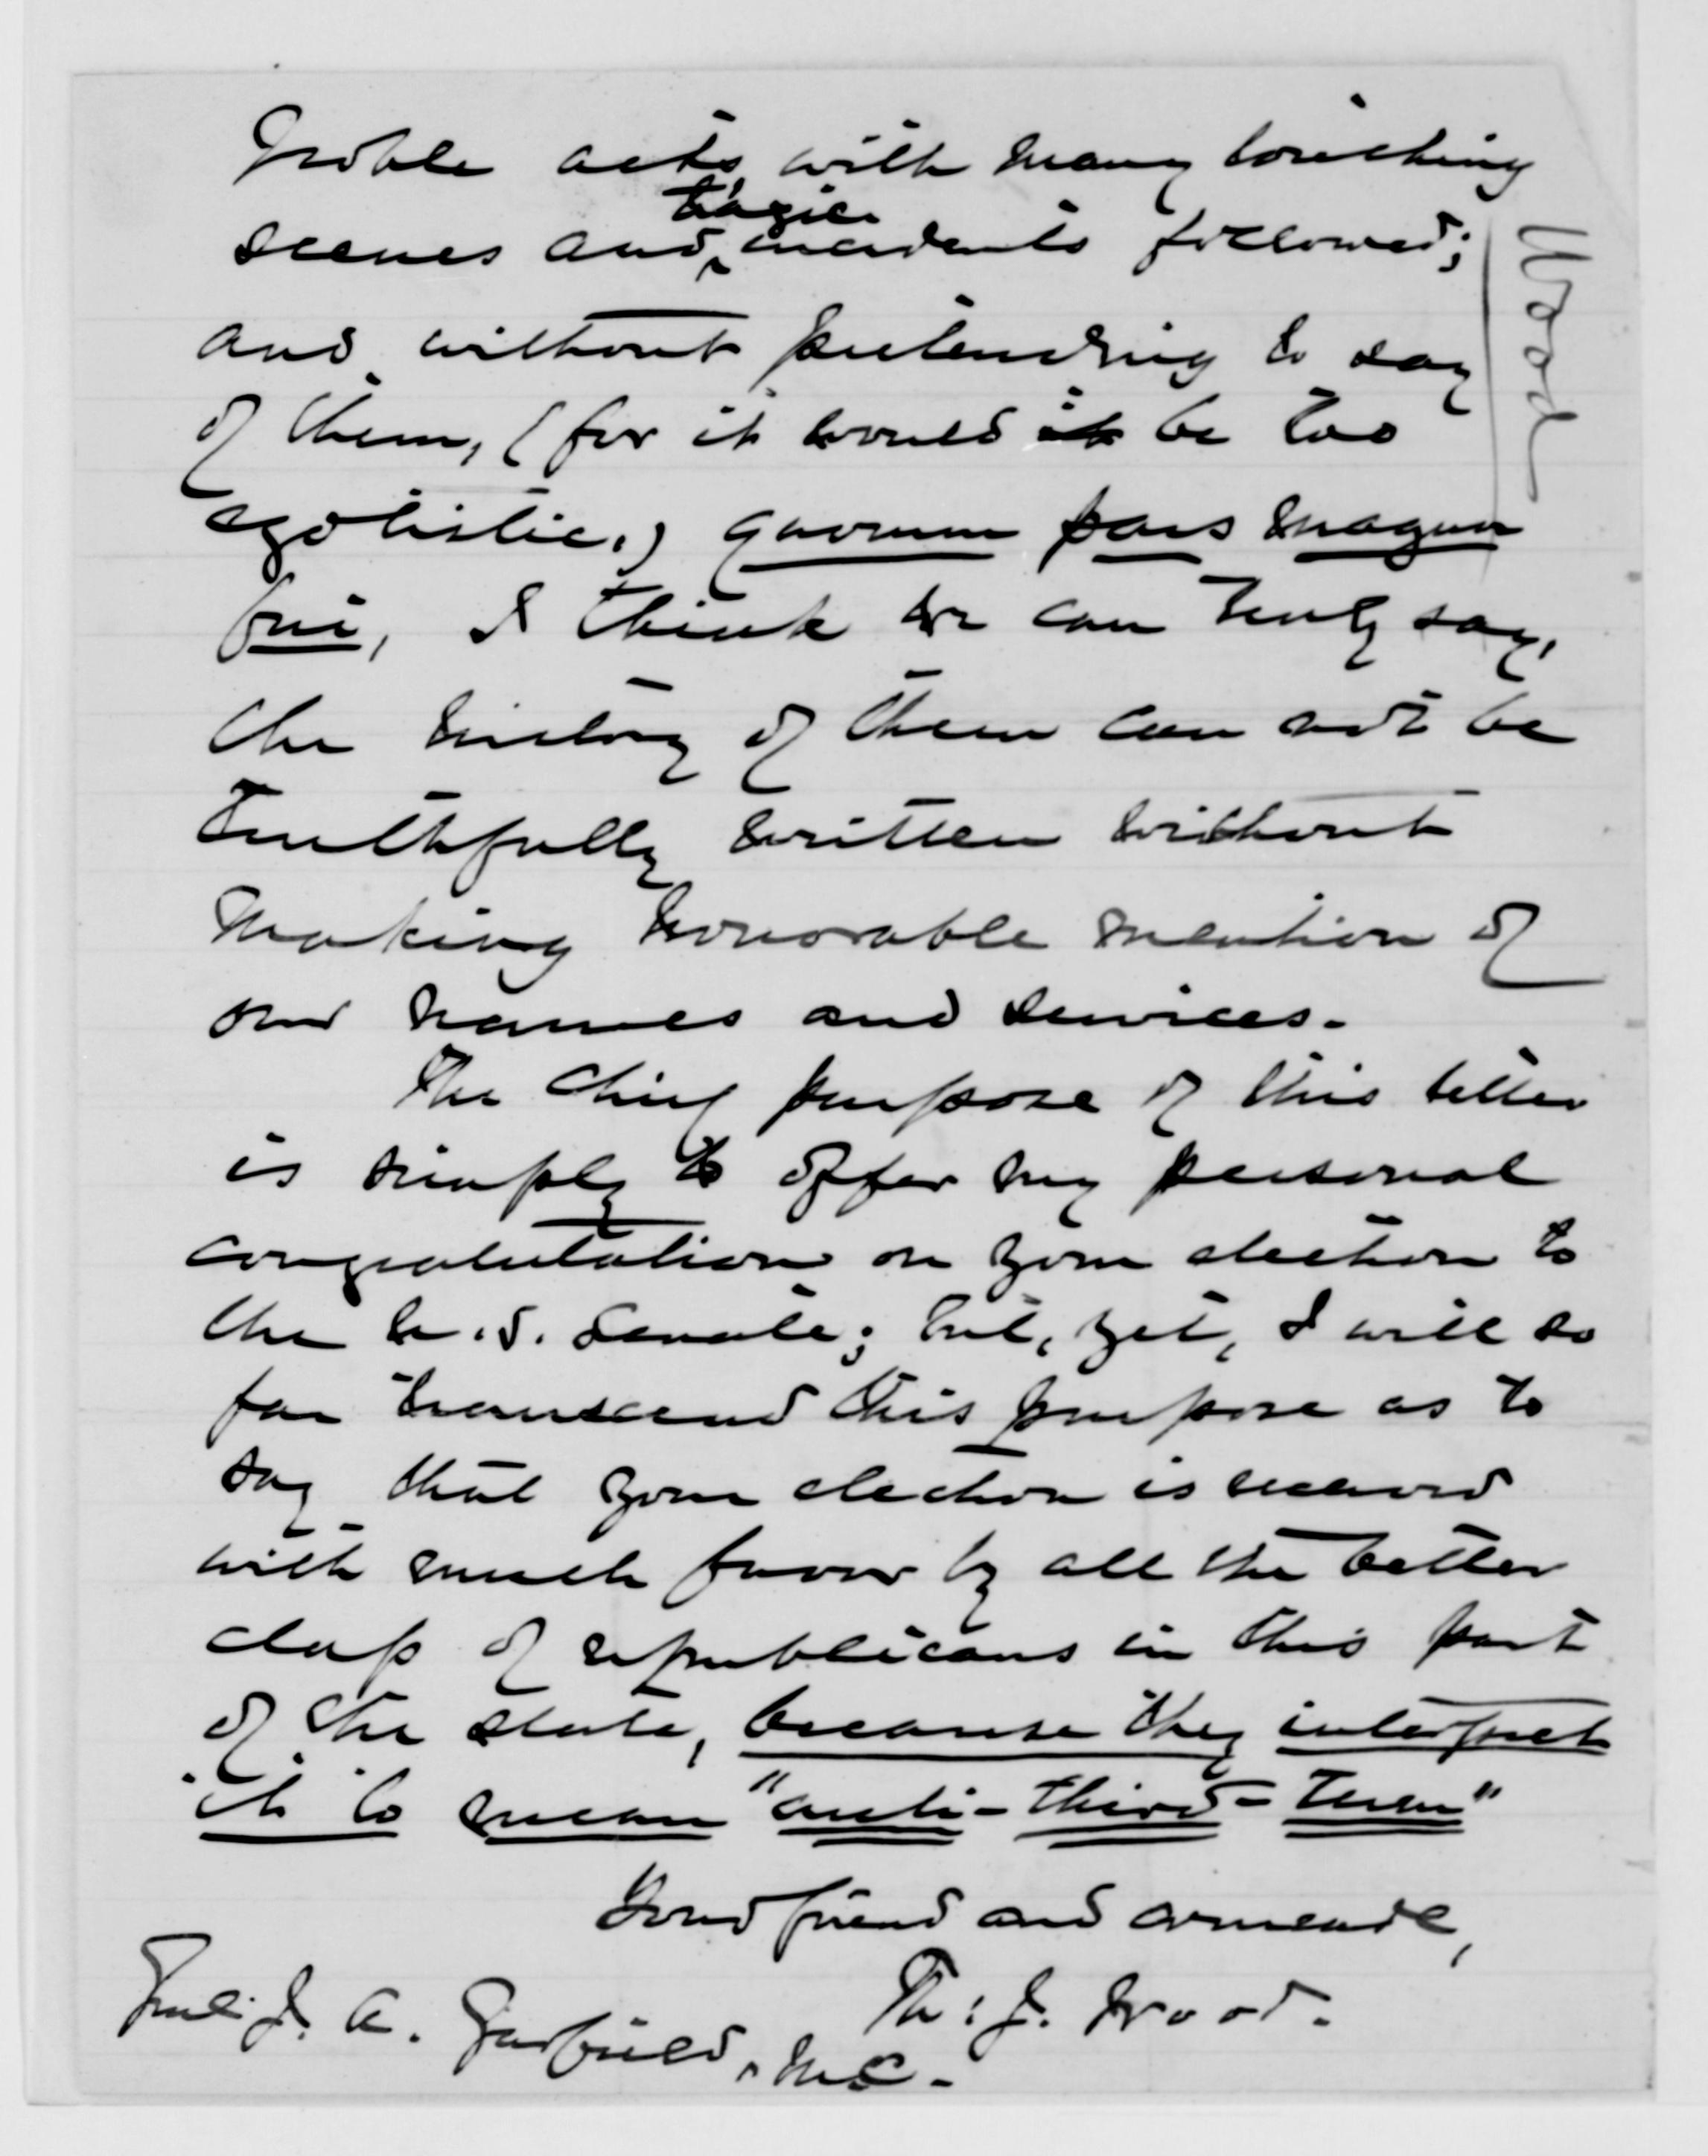 Noble acts, with many touching
scenes and tragic incidents followed;
and without pretending to say
of them, (for it would it be too
egotistic,) quorum pars magna
fui, I think we can truly say,
the history of them can not be
truthfully written without
making honorable mention of
our names and services.
The chief purpose of this letter
is simply to offer my personal
congratulation on your election to
the U.S. Senate; but, yet, I will so
far transcend this purpose as to
say that your election is received
with much favor by all the better
class of republicans in this part
of the state, because they interpret
it to mean "anti-third-term"
Your friend and comrade,
Th: J. Wood.
Genl: J. A. Garfield, M.C.
Wood